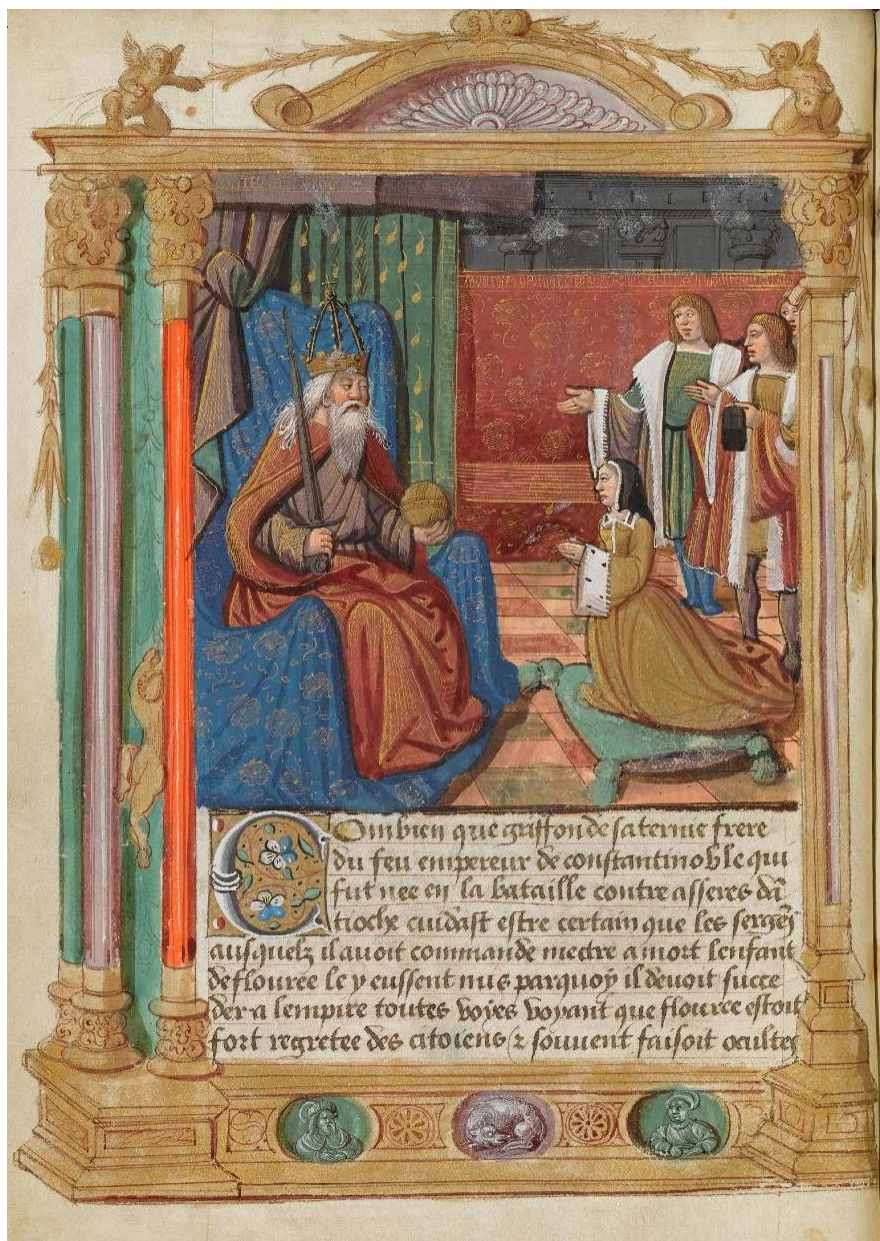 Combien que griffon de saternie frere
du feu empereur de constantinoble qui
fut nee en la bataille contre asseres dā
tioche cuidast estre certain que les sergēs
ausquelz il auoit commande mectre a mort lenfant
de flouree le y eussent mis parquoy il deuoit succe
der a lempire toutes voyes voyant que flouree estoit
fort regretee des citoiens & souuent faisoit ocultes